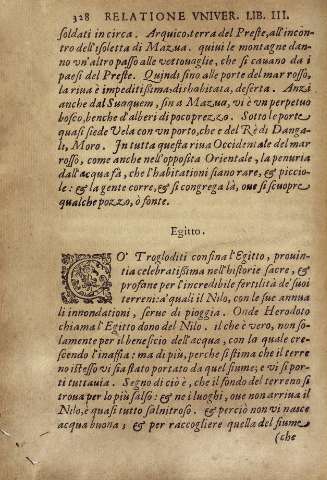 328 RELATIONE VNIVER. LIB. III.
soldati in circa. Arquico terra del Preste, all'incon
tro dell'isoletta di Mazua. quiui le montagne dan-
no vn'altro passo alle vettouaglie, che si cauano da i
paesi del Preste. Quindi sino alle porte del mar rosso,
la riua è impeditissima, dishabitata, deserta. Anzi
anche dal Suaquem, sin a Mazua, vi è vn perpetuo
bosco, benche d'alberi di poco prezzo. Sotto le porte
quasi siede Vela con vn porto, che è del Rè di Danga-
li, Moro. In tutta questa riua Occidentale del mar
rosso, come anche nell'opposita Orientale, la penuria
dall'acqua fà, che l'habitationi siano rare, & piccio-
le: & la gente corre, & si congrega là, oue si scuopre
qualche pozzo, ò fonte.
Egitto.
CO' Trogloditi confina l'Egitto, prouin-
tia celebratissima nell'historie sacre, &
profane per l'incredibile fertilità de' suoi
terreni: a' quali il Nilo, con le sue annua
li innondationi, serue di pioggia. Onde Herodoto
chiama l'Egitto dono del Nilo. il che è vero, non so-
lamente per il beneficio dell'acqua, con la quale cre-
scendo l'inaffia: ma di più, perche si stima che il terre
no istesso vi sia stato portato da quel fiume, e vi si por-
ti tuttauia. Segno di ciò è, che il fondo del terreno si
troua per lo più salso: & ne i luoghi, oue non arriua il
Nilo, è quasi tutto salnitroso. & perciò non vi nasce
acqua buona; & per raccogliere quella del fiume
(che